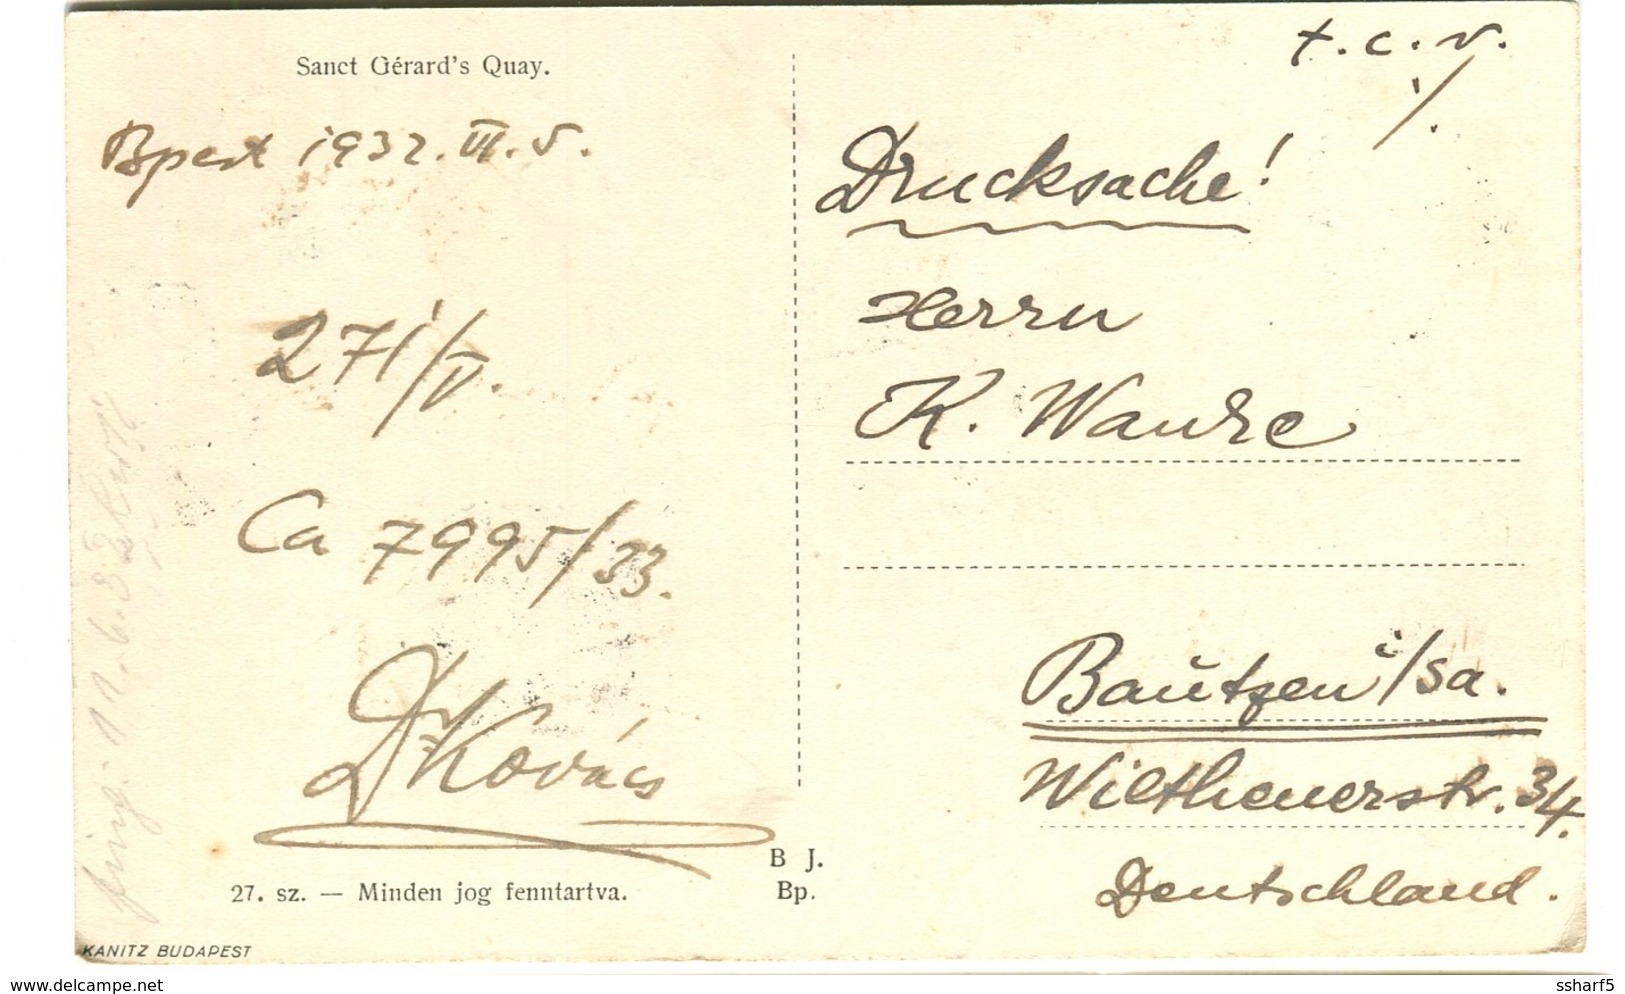 Sanct Gérard's Quay.
Bpest 1932. VI. 5.
271/V.
Ca 7995/33.
Dr Kovács
27. sz. — Minden jog fenntartva.
KANITZ BUDAPEST
B J.
Bp.
t.c.v.
Drucksache!
Herrn
K. Wauke
Bautzen i/Sa.
Wilthenerstr. 34.
Deutschland.
11.6.32
www.delcampe.net
ssharf5